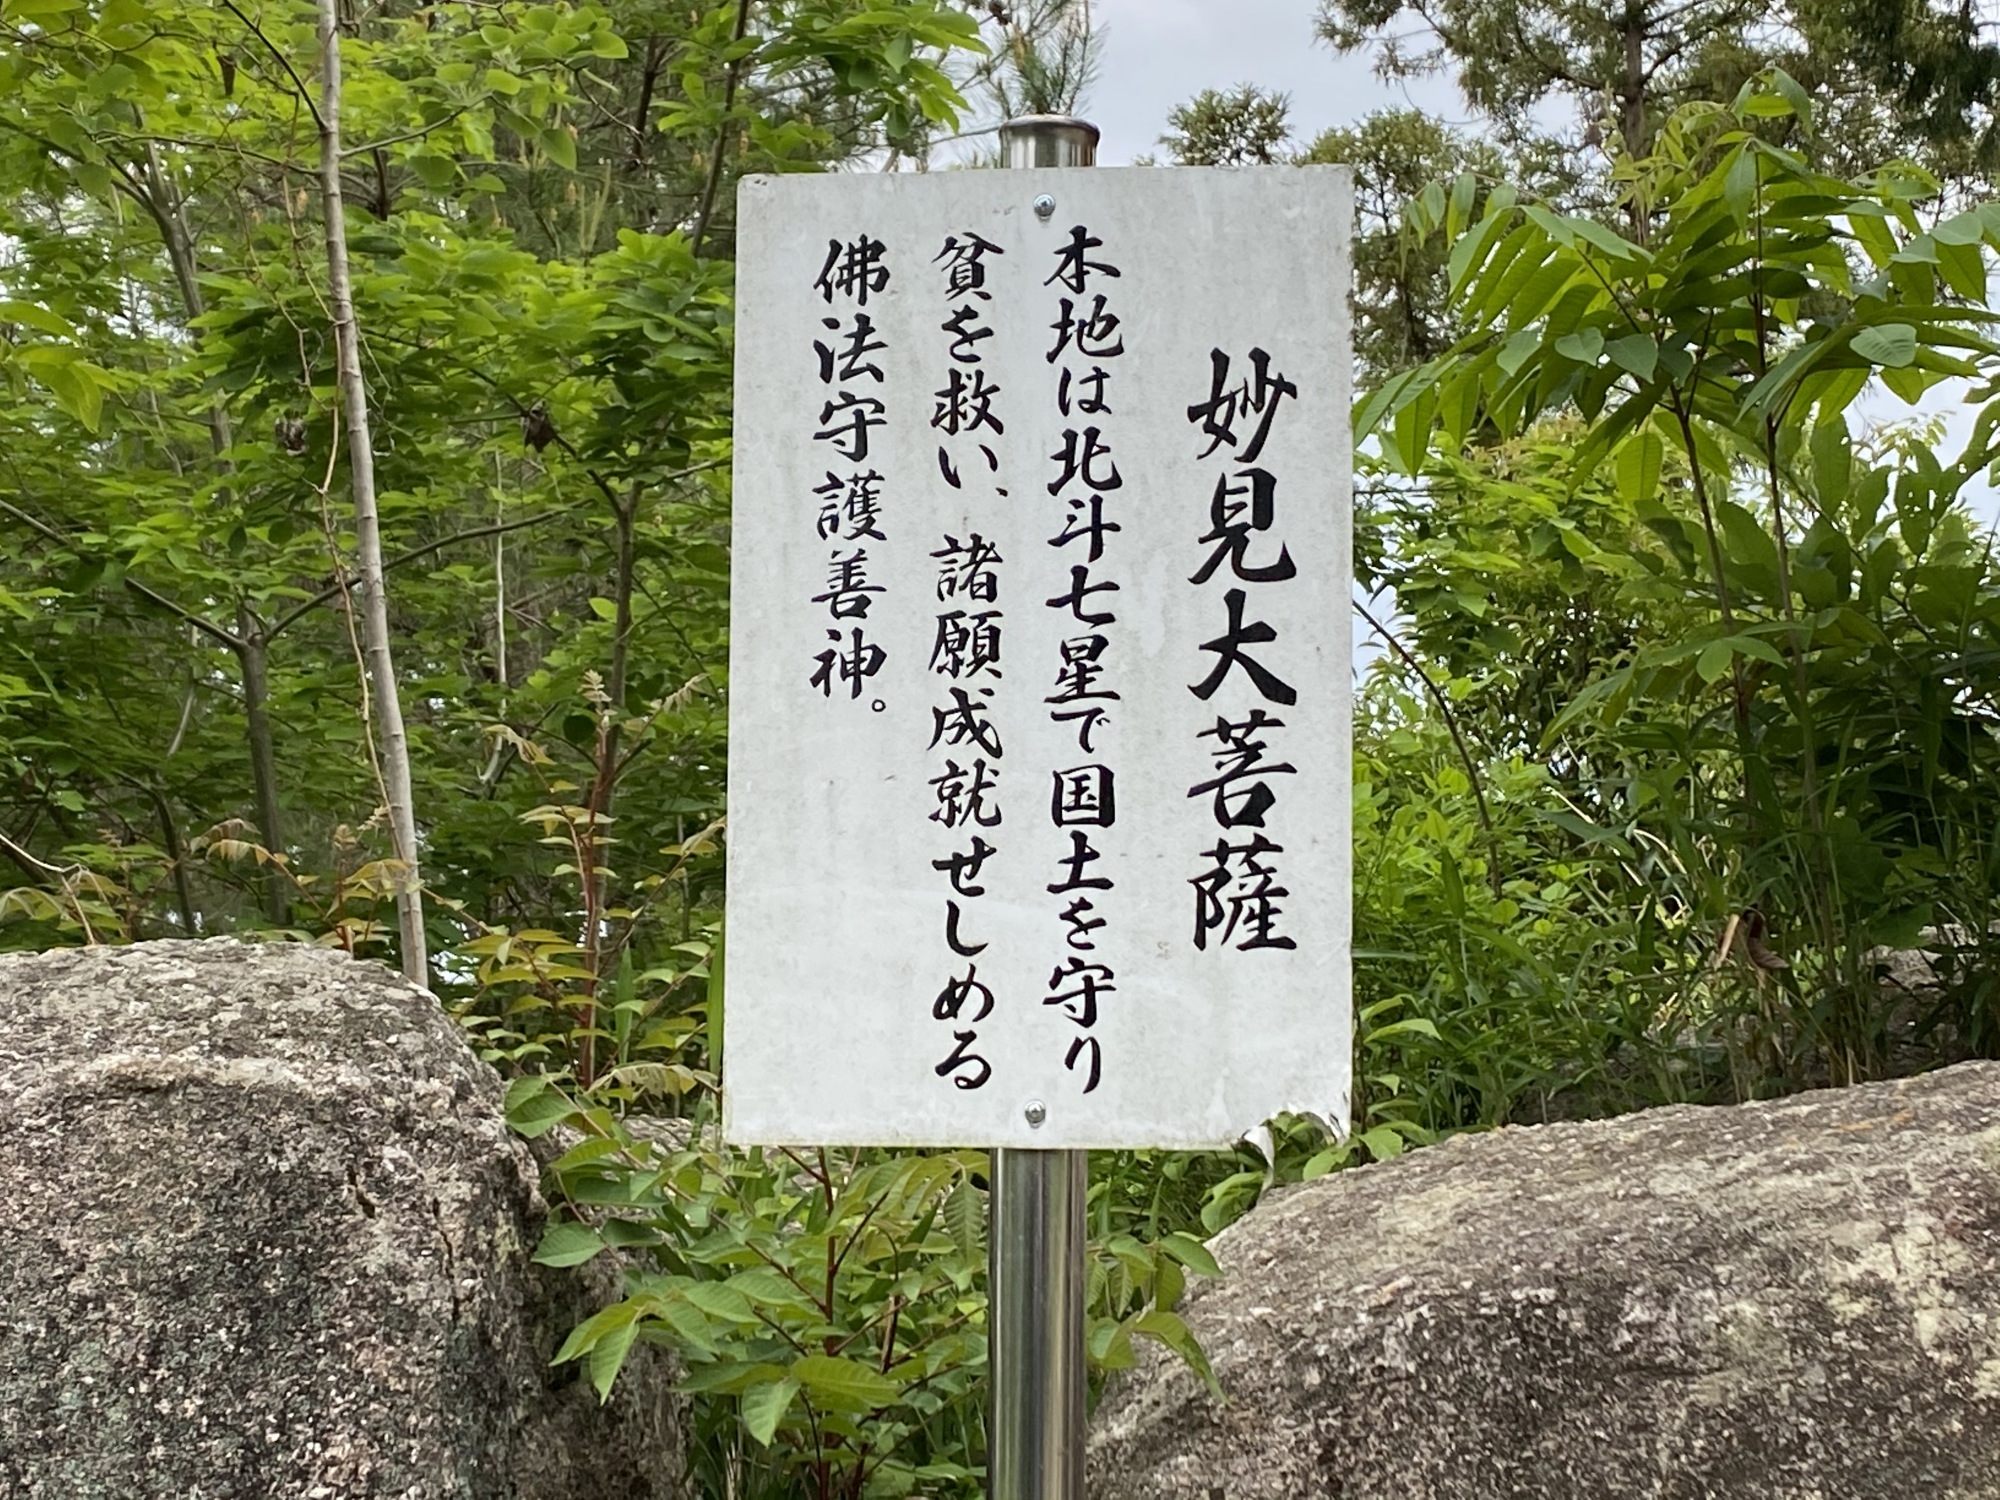 妙見大菩薩
本地は北斗七星で国土を守り
貧を救い、諸願成就せしめる
佛法守護善神。